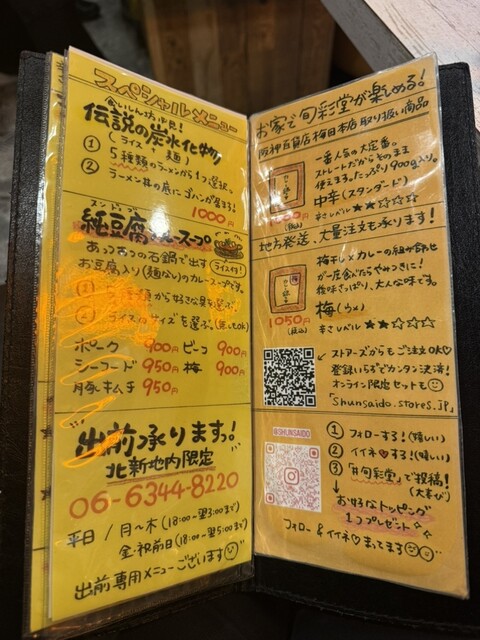 スペシャルメニュー
食いしん坊必見!
伝説の炭水化物
(ライス 麺)
① 5種類のラーメンから1つ選択。
② ラーメン丼の底にゴハンが居ます!
1000円
スンドゥブ
純豆腐 スープ
あっつあつの石鍋で出す ライス付!
お豆腐入り(麺なし)のカレースープです。
種類から好きな具を選ぶ
② ライスのサイズを選ぶ(無しもok)
ポーク 900円 ビーフ 900円
シーフード 950円 梅 900円
豚キムチ 950円
出前承りますっ!
北新地内限定
06-6344-8220
平日/月〜木(18:00〜翌3:00まで)
金・祝前日(18:00〜翌5:00まで)
出前専用メニューございます
お家で旬彩堂が楽しめる!
阪神百貨店梅田本店取り扱い商品
一番人気の大定番。
ストレートだからそのまま
使えます。たっぷり900g入り。
中辛(スタンダード)
(税込)
辛さレベル★★☆☆☆
地方発送、大量注文も承ります!
梅干しとカレーの組み合わせ
が一度食べたらやみつきに!
後味さっぱり、大人な味です。
梅(ウメ)
1050円
(税込)
辛さレベル★★☆☆☆
ストアーズからもご注文OK♡
登録いらずでカンタン決済!
オンライン限定セットも
「shunsaido.stores.jp」
@SHUNSAIDO
① フォローする!(嬉しい)
② イイネ♡する!(嬉しい)
③ 「#旬彩堂」で投稿!
(大喜び)
↓
お好きなトッピング
1つプレゼント☆
フォロー&イイネ♡まってます